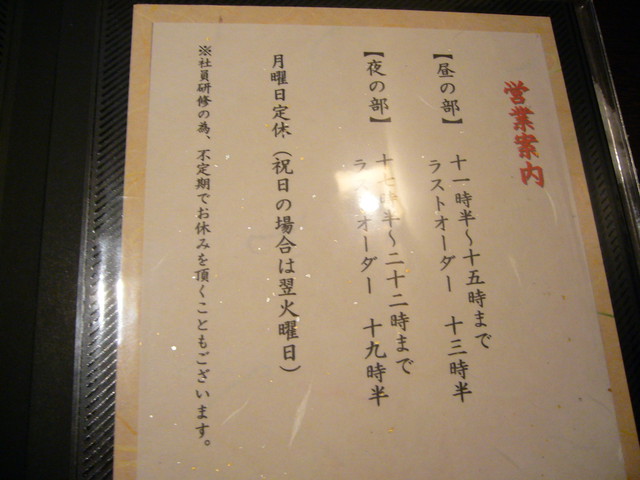 営業案内
【昼の部】 十一時半～十五時まで
ラストオーダー 十三時半
【夜の部】 十七時半～二十二時まで
ラストオーダー 十九時半
月曜日定休（祝日の場合は翌火曜日）
※社員研修の為、不定期でお休みを頂くこともございます。